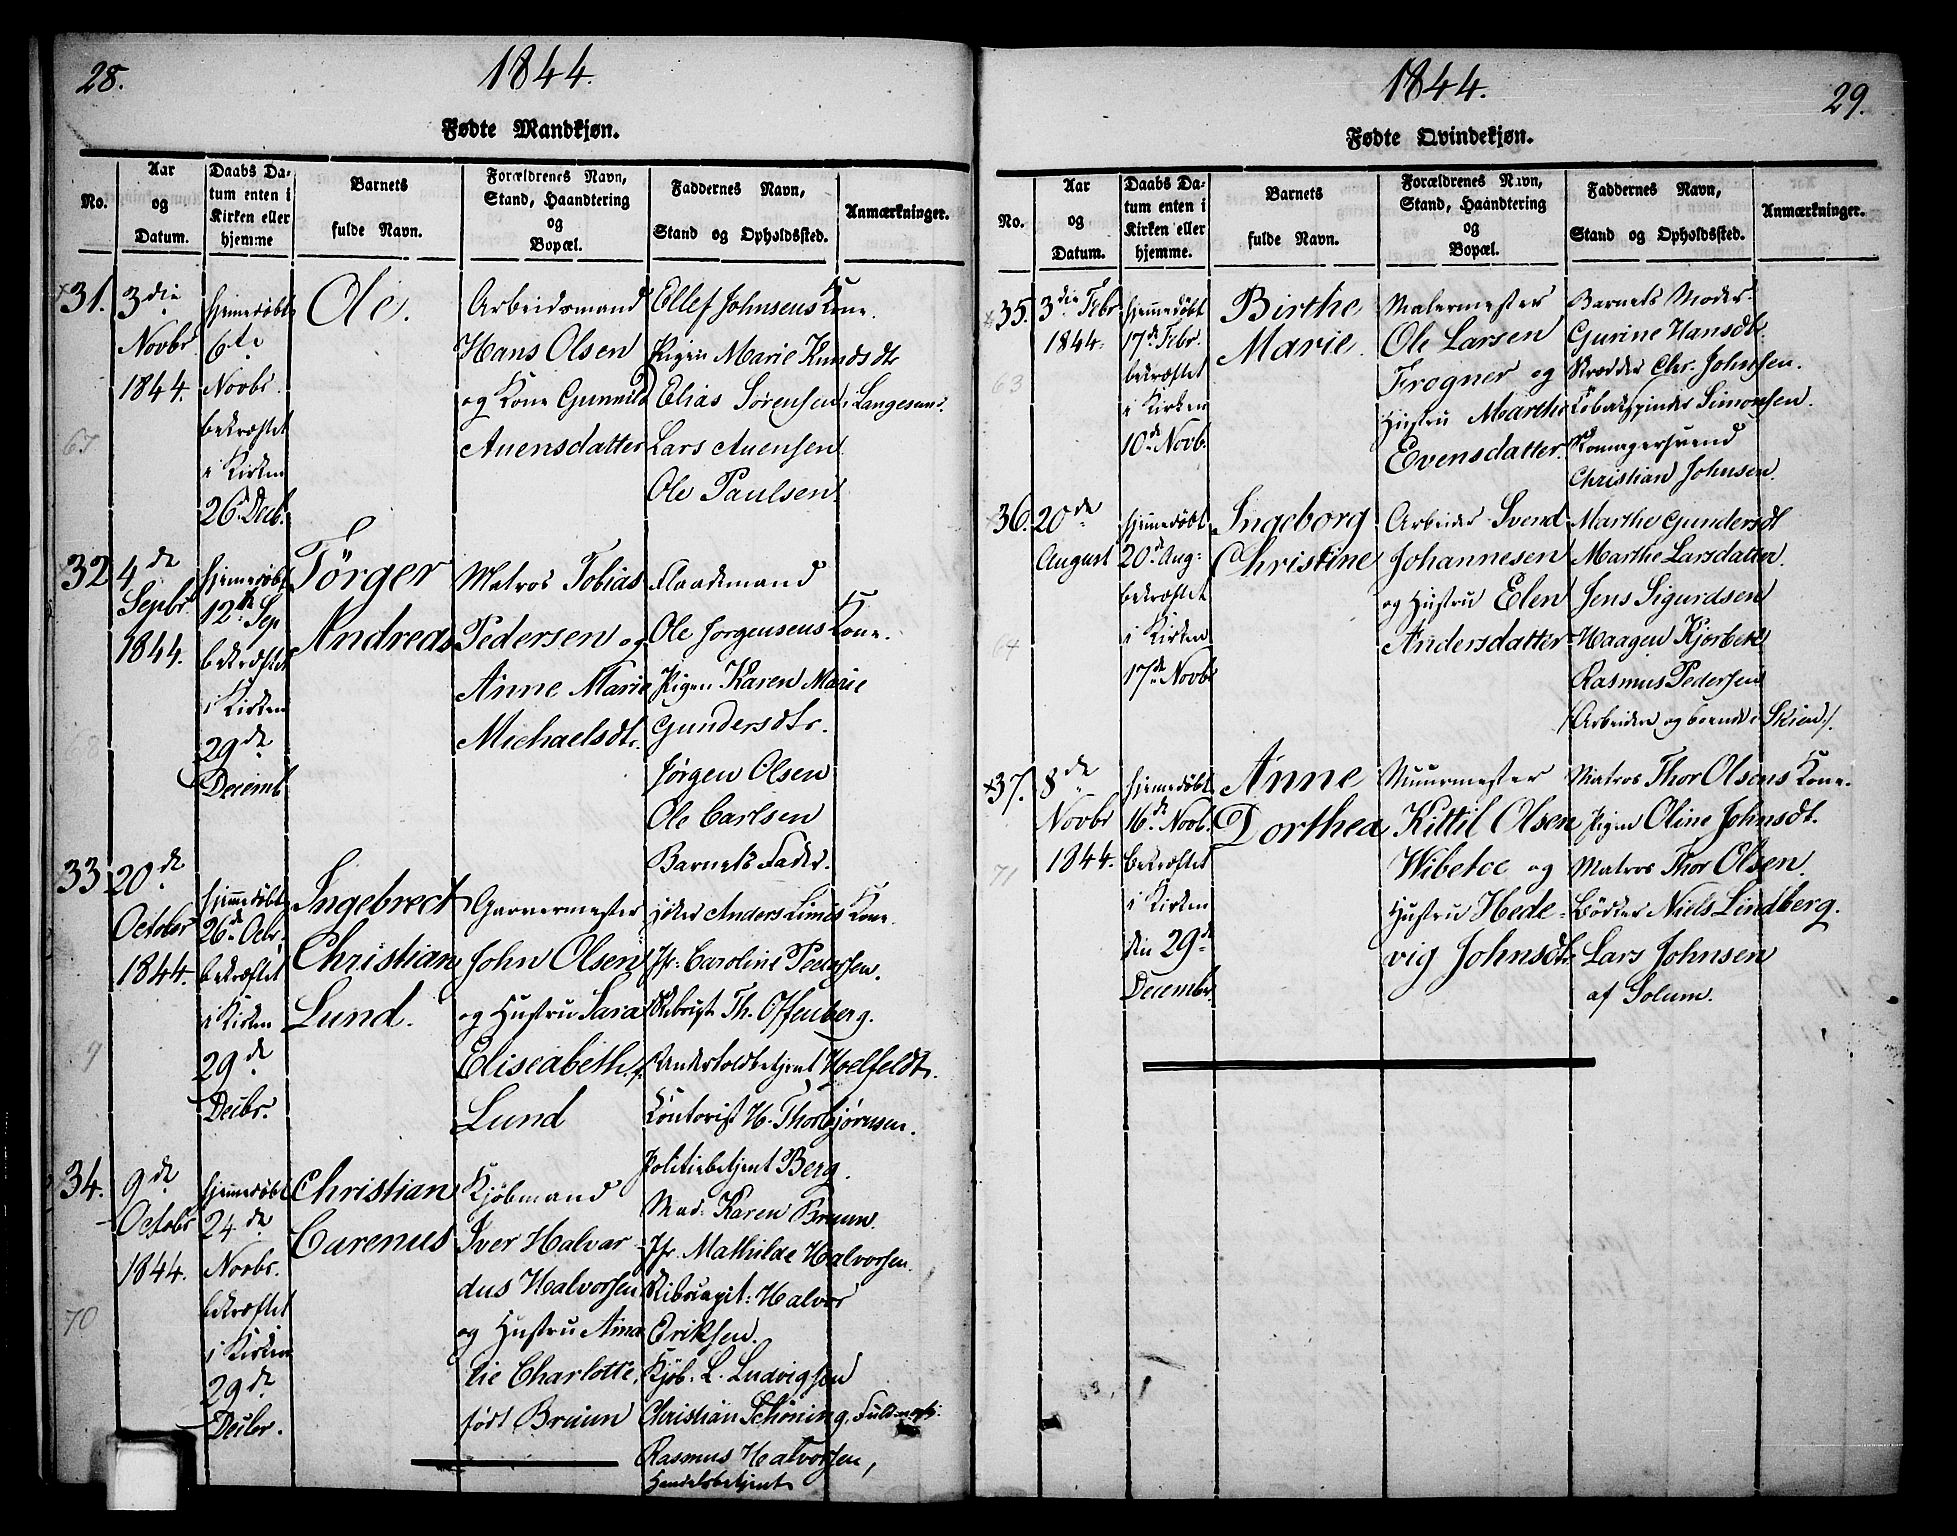 28.
1844.
Fødte Mandkjøn.
No.
Aar og Datum.
Daabs Datum enten i Kirken eller hjemme
Barnets fulde Navn.
Forældrenes Navn, Stand, Haandtering og Bopæl.
Faddernes Navn, Stand og Opholdssted.
Anmærkninger.
31.
3die
Novbr
1844.
67
hjemmedøbt
6te
Novbr.
bekræftet
i Kirken
26. Decb.
Ole.
Arbeidsmand
Hans Olsen
og Kone Gunnild
Auensdatter
Ellef Johnsens Kone.
Pigen Marie Knudsdtr
Elias Sørensen i Langesund.
Lars Auensen
Ole Paulsen
32
4de
Sepbr.
1844.
68
hjemmedøbt
12te Sep
bekræftet
i Kirken
29de
Decemb
Törger
Andreas
Matros Tobias
Pedersen og
Anne Marie
Michaelsdtr.
Flaadmand
Ole Jorgensens Kone.
Pigen Karen Marie
Gundersdtr.
Jørgen Olsen
Ole Carlsen
Barnets Fader.
33
20de
October
1844.
9
hjemmedøbt
26de Octr.
bekræftet
i Kirken
29de
Decbr.
Ingebrect
Christian
Lund.
Garvermester
John Olsen
og Hustru Sara
Eliseabeth, f.
Lund
Anders Limis Kone.
Jfr. Caroline Pedersen.
Th. Offenberg.
Undertoldbetjent Hoelfeldt.
Kontorist H. Thorbjørnsen.
Politiebetjent Berg.
34.
9de
Octobr
1844.
70
hjemmedøbt
24de
Novbr.
bekræftet
i Kirken
29de
Decbr.
Christian
Carenus
Kjöbmand
Iver Halvar-
dus Halvorsen
og Hustru Ama-
lie Charlotte,
født Bruun
Mad. Karen Bruun.
Jfr. Mathilde Halvorsen.
Skibscapit: Halvor
Eriksen.
Kjöb. L. Ludvigsen
Christian Schöning, Fuldmægt.
Rasmus Halvorsen,
Handelsbetjent
1844.
29.
Fødte Qvindekjøn.
No.
Aar og Datum.
Daabs Datum enten i Kirken eller hjemme.
Barnets fulde Navn.
Forældrenes Navn, Stand, Haandtering og Bopæl.
Faddernes Navn, Stand og Opholdssted.
Anmærkninger.
35.
3die Febr
1844.
63
hjemmedøbt
17de Febr.
bekræftet
i Kirken
10de Novb.
Birthe
Marie.
Malermester
Ole Larsen
Frogner og
Hustru Marthe
Evensdatter.
Barnets Moder.
Gurine Hansdtr.
Skrædder Chr. Johnsen.
Tobakspinder Simonsen.
Svend
Christian Johnsen.
36.
20de
August
64
hjemmedøbt
20de Aug:
bekræftet
i Kirken
17de Novb
Ingeborg
Christine
Arbeider Svend
Johannesen
og Hustru Elen
Andersdatter
Marthe Gundersdt
Marthe Larsdatter.
Jens Sigurdsen
Haagen Kjorbek
Rasmus Pedersen
/Arbeidere og boende i Skien/.
37.
8de
Novbr
1844.
71
hjemmedøbt
16de Novb.
bekræftet
i Kirken
den 29de
December
Anne
Dorthea
Muurmester
Kittil Olsen
Wibetoe og
Hustru Hede-
vig Johnsdtr
Matros Thor Olsens Kone.
Pigen Oline Johnsdt.
Matros Thor Olsen.
Bödker Niels Lindberg.
Lars Johnsen
af Solum.